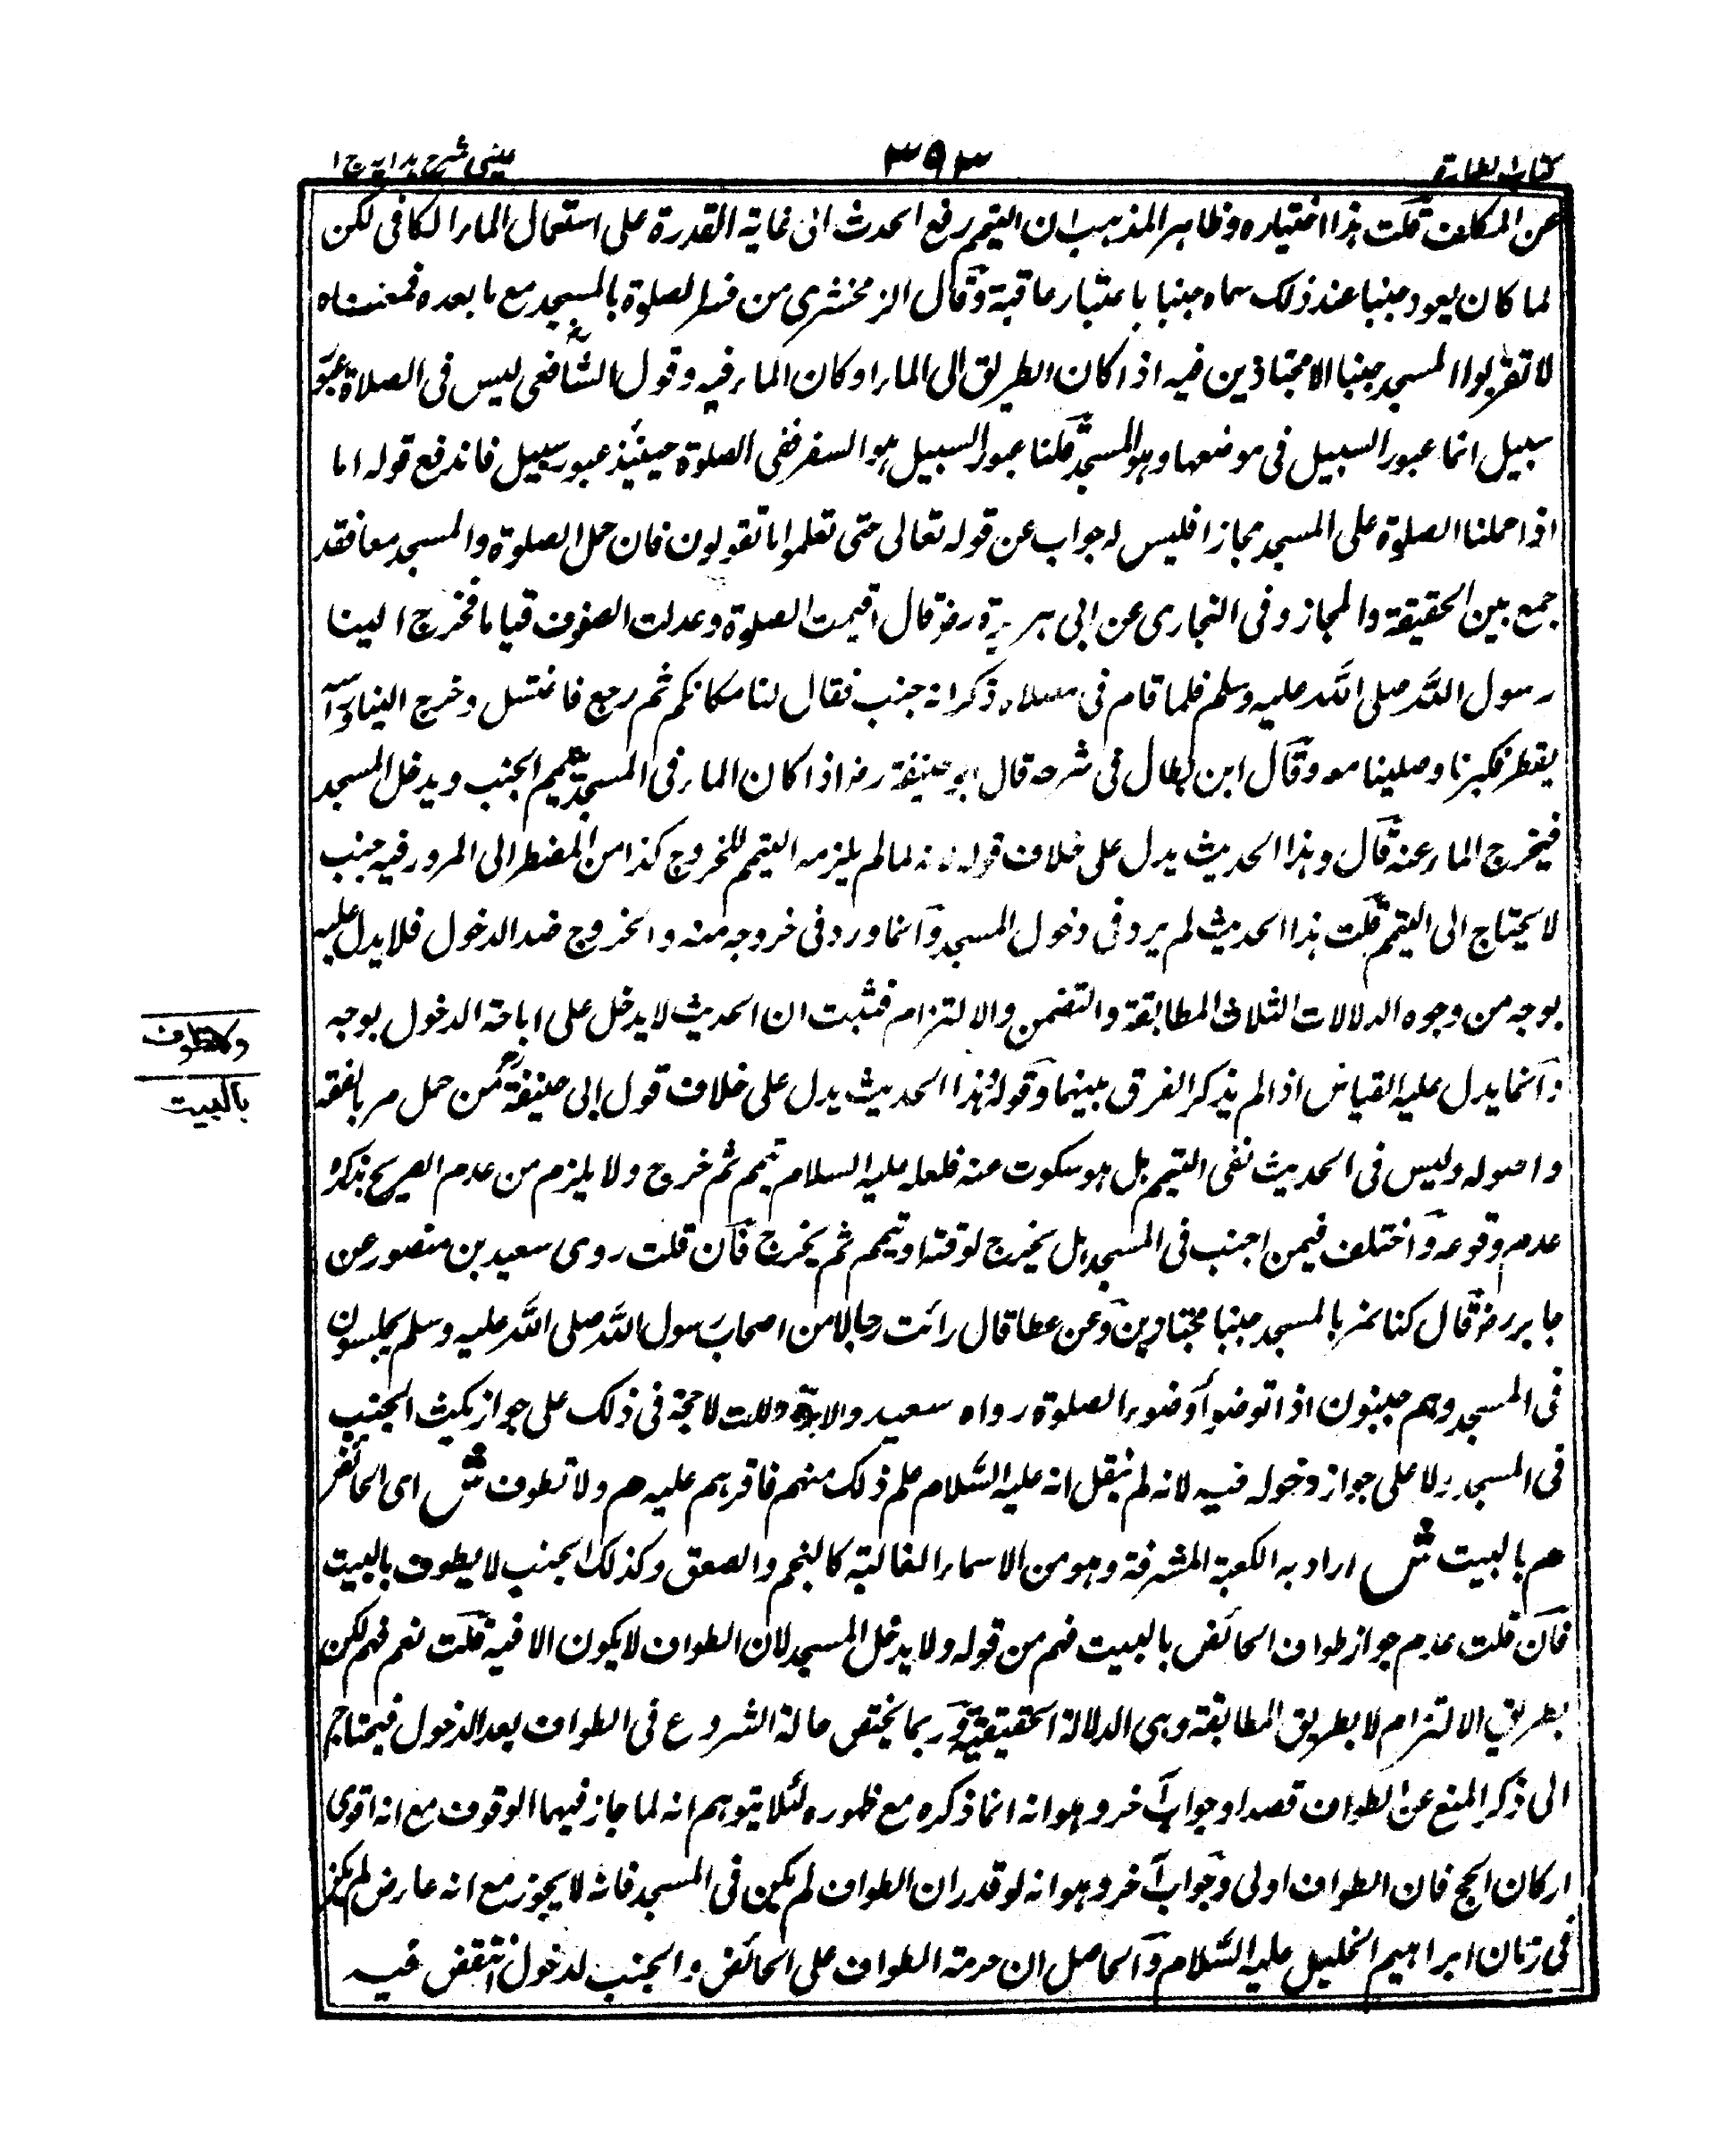 كتاب الطهارة
٣٩٣
عينى شرح هدايه ج ١
عن المكلف قلت هذا اختياره وظاهر المذهب ان التيمم رفع الحدث الى غاية القدرة على استعمال الماء الكافى لكن
لما كان يعود جنبا عند ذلك سماه جنبا باعتبار عاقبة وقال الزمخشرى من فسر الصلوة بالمسجد مع ما بعده فمعناه
لا تقربوا المسجد جنبا الا مجتازين فيه اذا كان الطريق الى الماء او كان الماء فيه وقول الشافعى ليس فى الصلاة عبور
سبيل انما عبور السبيل فى موضعها وهو المسجد قلنا عبور السبيل هو السفر ففى الصلوة حينئذ عبور سبيل فاندفع قوله اما
اذا حملنا الصلوة على المسجد مجازا فليس له جواب عن قوله تعالى حتى تعلموا ما تقولون فان حمل الصلوة والمسجد معا فقد
جمع بين الحقيقة والمجاز وفى البخارى عن ابى هريرة رضـ قال اقيمت الصلوة وعدلت الصفوف قياما فخرج الينا
رسول الله صلى الله عليه وسلم فلما قام فى مصلاه ذكر انه جنب فقال لنا مكانكم ثم رجع فاغتسل وخرج الينا وراسه
يقطر فكبرنا وصلينا معه وقال ابن بطال فى شرحه قال ابو حنيفة رضـ اذا كان الماء فى المسجد يتيمم الجنب ويدخل المسجد
فيخرج الماء عنه قال وهذا الحديث يدل على خلاف قوله لانه لما لم يلزمه التيمم للخروج كذا من المضطر الى المرور فيه جنب
لا يحتاج الى التيمم قلت هذا الحديث لم يرد فى دخول المسجد وانما ورد فى خروجه منه والخروج ضد الدخول فلا يدل عليه
بوجه من وجوه الدلالات الثلاث المطابقة والتضمن والالتزام فثبت ان الحديث لا يدخل على اباحة الدخول بوجه
وانما يدل عليه القياس اذا لم يذكر الفرق بينهما وقوله هذا الحديث يدل على خلاف قول ابى حنيفة من حمل مر بالفقه
واصوله وليس فى الحديث نفى التيمم بل هو سكوت عنه فلعله عليه السلام تيمم ثم خرج ولا يلزم من عدم الصريح بذكره
عدم وقوعه واختلف فيمن اجنب فى المسجد هل يخرج لوقته او تيمم ثم يخرج فان قلت روى سعيد بن منصور عن
جابر رضـ قال كنا نمر بالمسجد جنبا مجتازين وعن عطا قال رائت رجالا من اصحاب رسول الله صلى الله عليه وسلم يجلسون
فى المسجد وهم جنبون اذا توضوأ وضوء الصلوة رواه سعيد والابة دللت لا حجة فى ذلك على جواز مكث الجنب
فى المسجد ولا على جواز دخوله فيه لانه لم ينقل انه عليه السلام علم ذلك منهم فاقرهم عليه هم ولا تطوف ش اى الحائض
هم بالبيت ش اراد به الكعبة المشرفة وهو من الاسماء الغالبة كالنجم والصعق وكذلك الجنب لا يطوف بالبيت
فان قلت عدم جواز طواف الحائض بالبيت فهم من قوله ولا يدخل المسجد لان الطواف لا يكون الا فيه قلت نعم فهم لكن
بطريق الالتزام لا بطريق المطابقة وهى الدلالة الحقيقية وربما يختص حالة الشروع فى الطواف بعد الدخول فيحتاج
الى ذكر المنع عن الطواف قصدا وجواب آخر وهو انه انما ذكره مع ظهوره لئلا يتوهم انه لما جاز فيهما الوقوف مع انه اقوى
اركان الحج فان الطواف اولى وجواب آخر وهو انه لو قدر ان الطواف لم يكن فى المسجد فانه لا يجوز مع انه عارض لم يكن
فى زمان ابراهيم الخليل عليه السلام والحاصل ان حرمة الطواف على الحائض والجنب لدخول النقض فيه
ولا تطوف
بالبيت